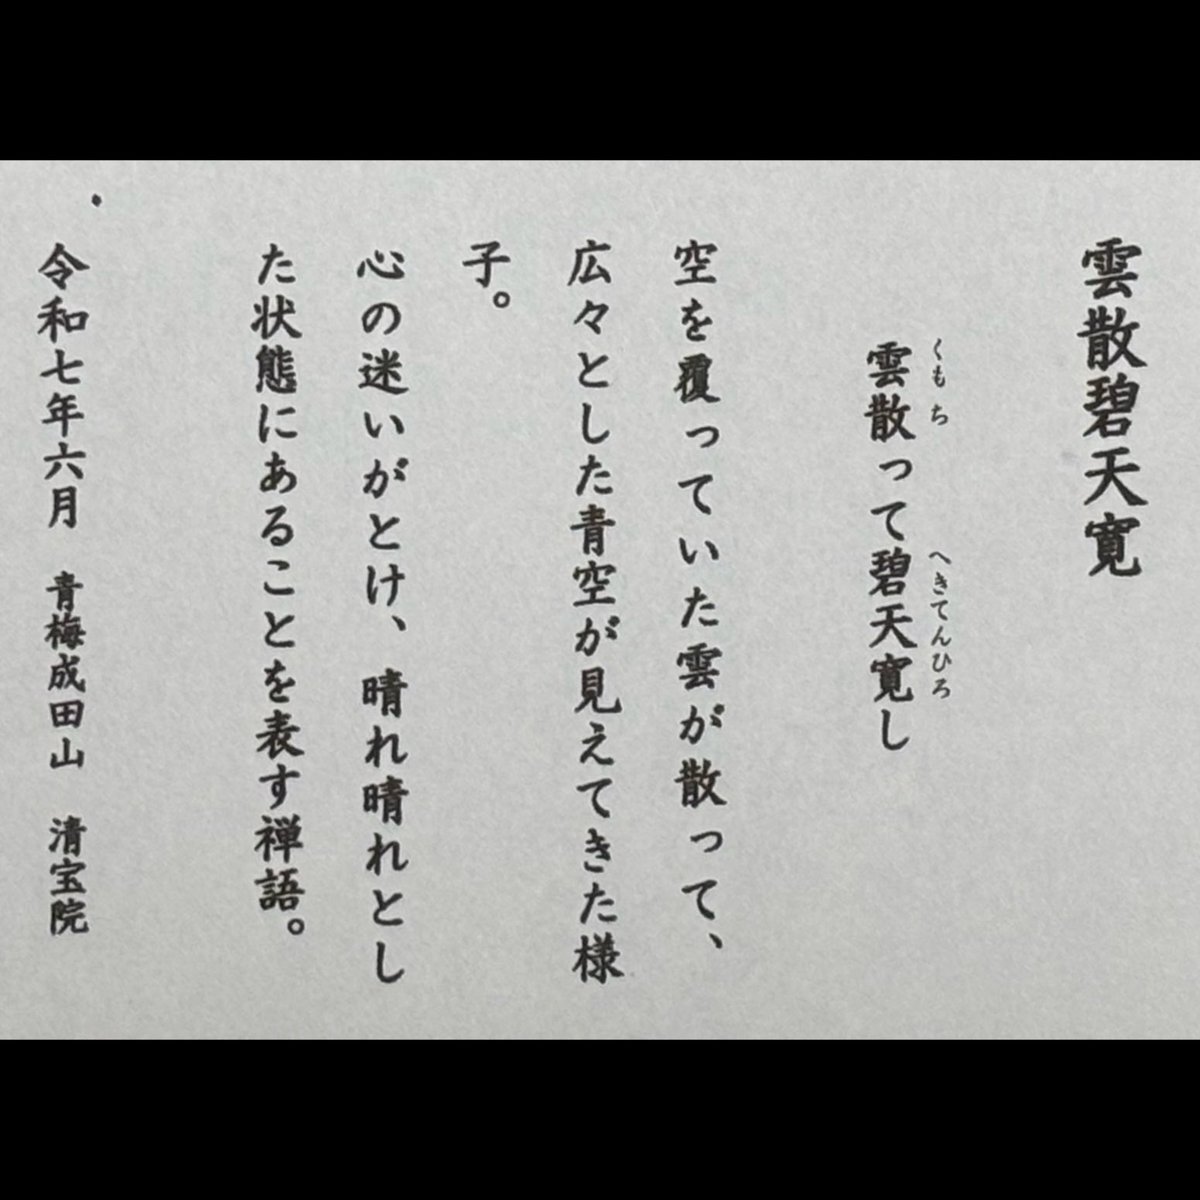 雲散碧天寛
くもち
へきてんひろ
雲散って碧天寛し
空を覆っていた雲が散って、
広々とした青空が見えてきた様
子。
心の迷いがとけ、晴れ晴れとし
た状態にあることを表す禅語。
令和七年六月 青梅成田山 清宝院